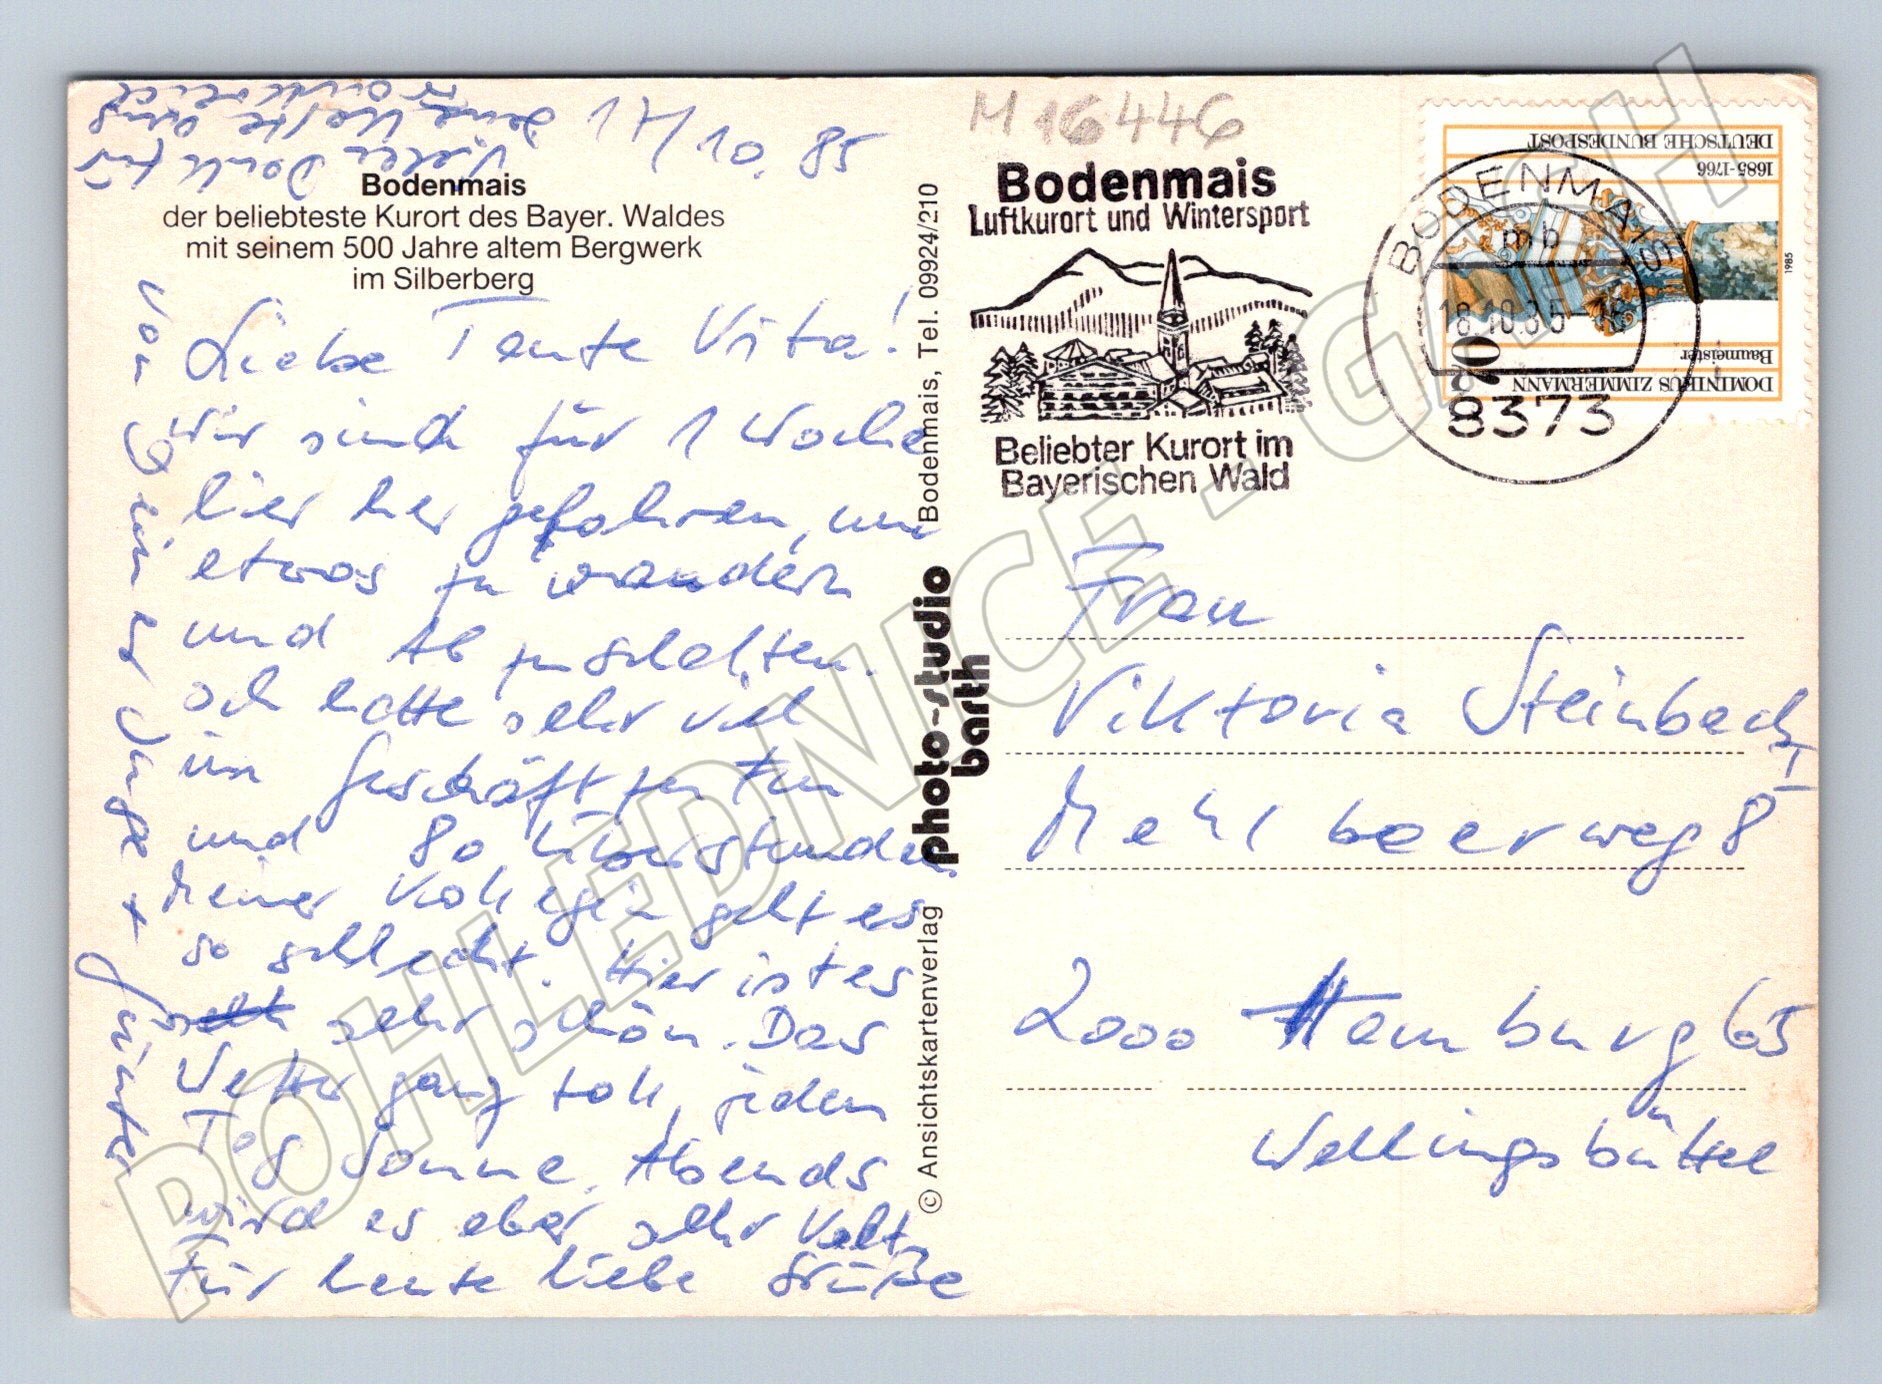 17/10.85
Vielen Dank für
Deine Karte aus
Frankreich
Bodenmais
der beliebteste Kurort des Bayer. Waldes
mit seinem 500 Jahre altem Bergwerk
im Silberberg
Liebe Tante Vita!
Wir sind für 1 Woche
hier her gefahren, um
etwas zu wandern
und Ab zuschalten.
Ich hatte sehr viel
im Geschäft zu tun
und 80 Überstunden.
Meiner Kollegin geht es
so schlecht. Hier ist es
sehr schön. Das
Wetter ganz toll, jeden
Tag Sonne. Abends
wird es aber sehr kalt.
Für heute liebe Grüße
von Deiner Inge + Günter
Bodenmais, Tel. 09924/210
photo-studio
barth
© Ansichtskartenverlag
M 16446
Bodenmais
Luftkurort und Wintersport
Beliebter Kurort im
Bayerischen Wald
BODENMAIS
mb
18.10.85-16
8373
DEUTSCHE BUNDESPOST
1685-1766
1985
Baumeister
DOMINIKUS ZIMMERMANN
Frau
Viktoria Steinbach
Mehlbeerweg 8
2000 Hamburg 65
Wellingsbüttel
POHLEDNICE - GASH